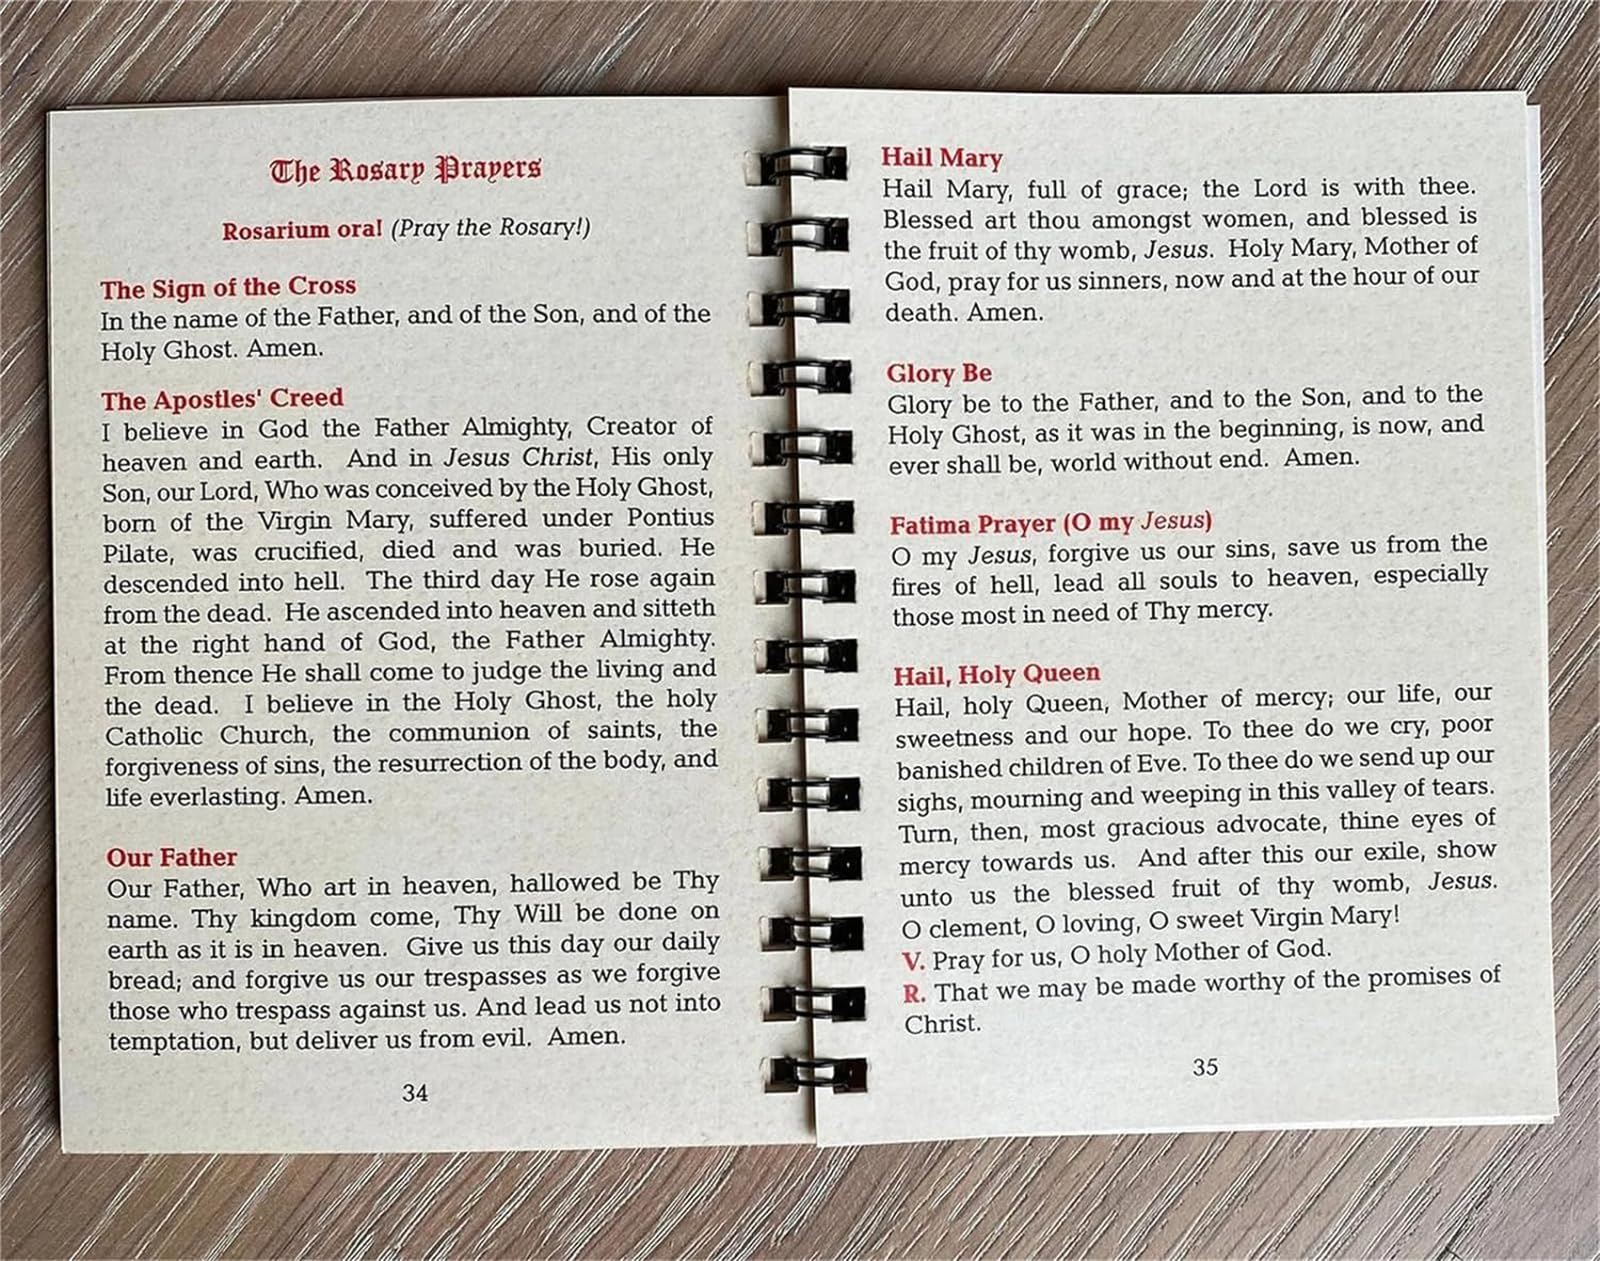 The Rosary Prayers
Rosarium ora! (Pray the Rosary!)
The Sign of the Cross
In the name of the Father, and of the Son, and of the
Holy Ghost. Amen.
The Apostles' Creed
I believe in God the Father Almighty, Creator of
heaven and earth. And in Jesus Christ, His only
Son, our Lord, Who was conceived by the Holy Ghost,
born of the Virgin Mary, suffered under Pontius
Pilate, was crucified, died and was buried. He
descended into hell. The third day He rose again
from the dead. He ascended into heaven and sitteth
at the right hand of God, the Father Almighty.
From thence He shall come to judge the living and
the dead. I believe in the Holy Ghost, the holy
Catholic Church, the communion of saints, the
forgiveness of sins, the resurrection of the body, and
life everlasting. Amen.
Our Father
Our Father, Who art in heaven, hallowed be Thy
name. Thy kingdom come, Thy Will be done on
earth as it is in heaven. Give us this day our daily
bread; and forgive us our trespasses as we forgive
those who trespass against us. And lead us not into
temptation, but deliver us from evil. Amen.
34
Hail Mary
Hail Mary, full of grace; the Lord is with thee.
Blessed art thou amongst women, and blessed is
the fruit of thy womb, Jesus. Holy Mary, Mother of
God, pray for us sinners, now and at the hour of our
death. Amen.
Glory Be
Glory be to the Father, and to the Son, and to the
Holy Ghost, as it was in the beginning, is now, and
ever shall be, world without end. Amen.
Fatima Prayer (O my Jesus)
O my Jesus, forgive us our sins, save us from the
fires of hell, lead all souls to heaven, especially
those most in need of Thy mercy.
Hail, Holy Queen
Hail, holy Queen, Mother of mercy; our life, our
sweetness and our hope. To thee do we cry, poor
banished children of Eve. To thee do we send up our
sighs, mourning and weeping in this valley of tears.
Turn, then, most gracious advocate, thine eyes of
mercy towards us. And after this our exile, show
unto us the blessed fruit of thy womb, Jesus.
O clement, O loving, O sweet Virgin Mary!
V. Pray for us, O holy Mother of God.
R. That we may be made worthy of the promises of
Christ.
35